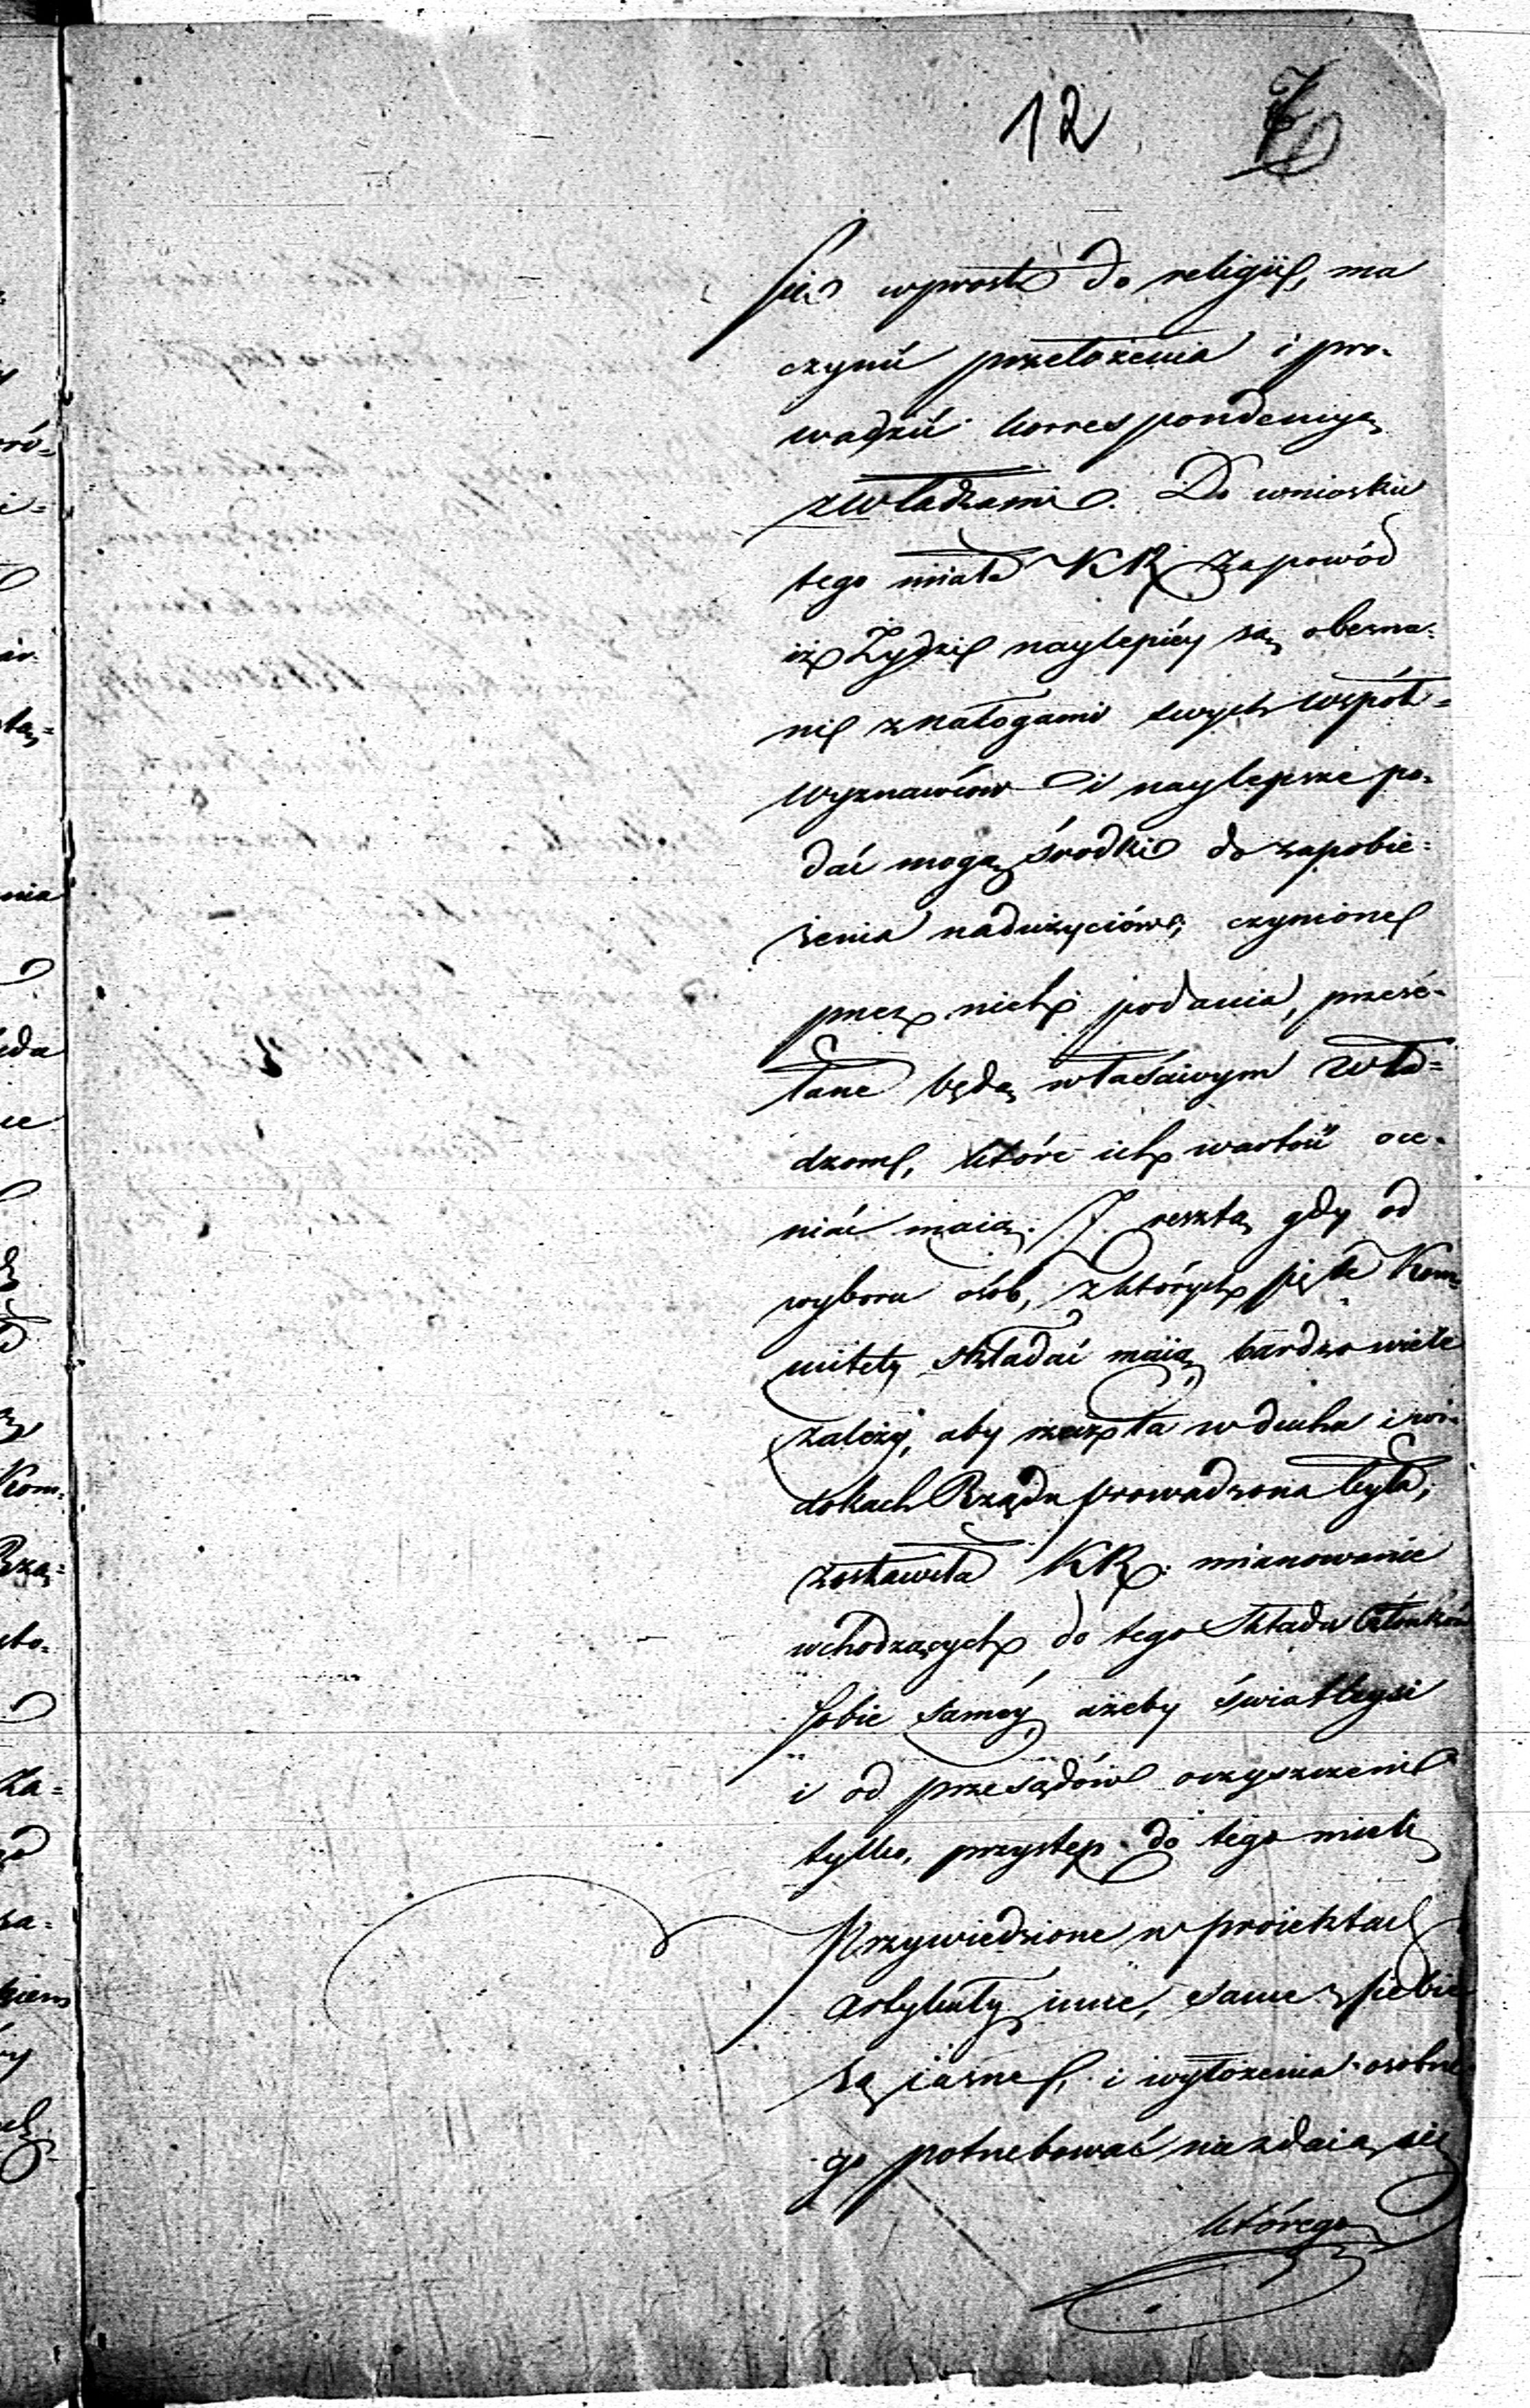 12
się wprost do religii, ma
czynić przełożenia i pro-
wadzić korrespondencyą
z władzami. Do wniosku
tego miała KR za powód
iż Żydzi naylepiéy są obezna-
ni z nałogami swych współ-
wyznawców i naylepsze po-
dać mogą środki do zapobie-
żenia nadużyciów; czynione
przez nich podania, przesé-
łane będą właściwym wła-
dzom, które ich wartość oce-
niać maią. Z resztą gdy od
wyboru osób, z których się te Kom-
mitety składać maią, bardzo wiele
zależy, aby rzecz ta w duchu i wi-
dokach Rządu prowadzona była,
zostawiła KR. mianowanie
wchodzących do tego składu Członków
sobie saméy, ażeby światleysi
i od przesądów oczyszczeni
tylko, przystęp do tego mieli
Przywiedzione w proiektach
artykuły inne, same z siebie
są iasne, i wyłożenia osobne-
go potrzebować nie zdaią się
którego